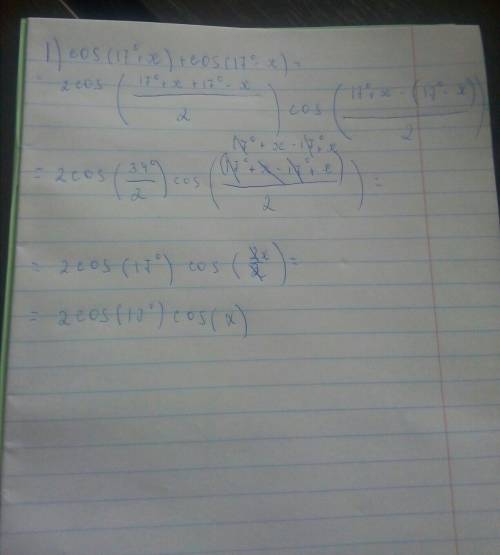 1) cos(17°+x)+cos(17°-x)=
= 2cos((17°+x+17°-x)/2) cos((17°+x-(17°-x))/2)
17°+x-17°+x
= 2cos(34°/2) cos((17°+x-17°+x)/2) =
= 2cos(17°) cos(2x/2) =
= 2cos(17°) cos(x)